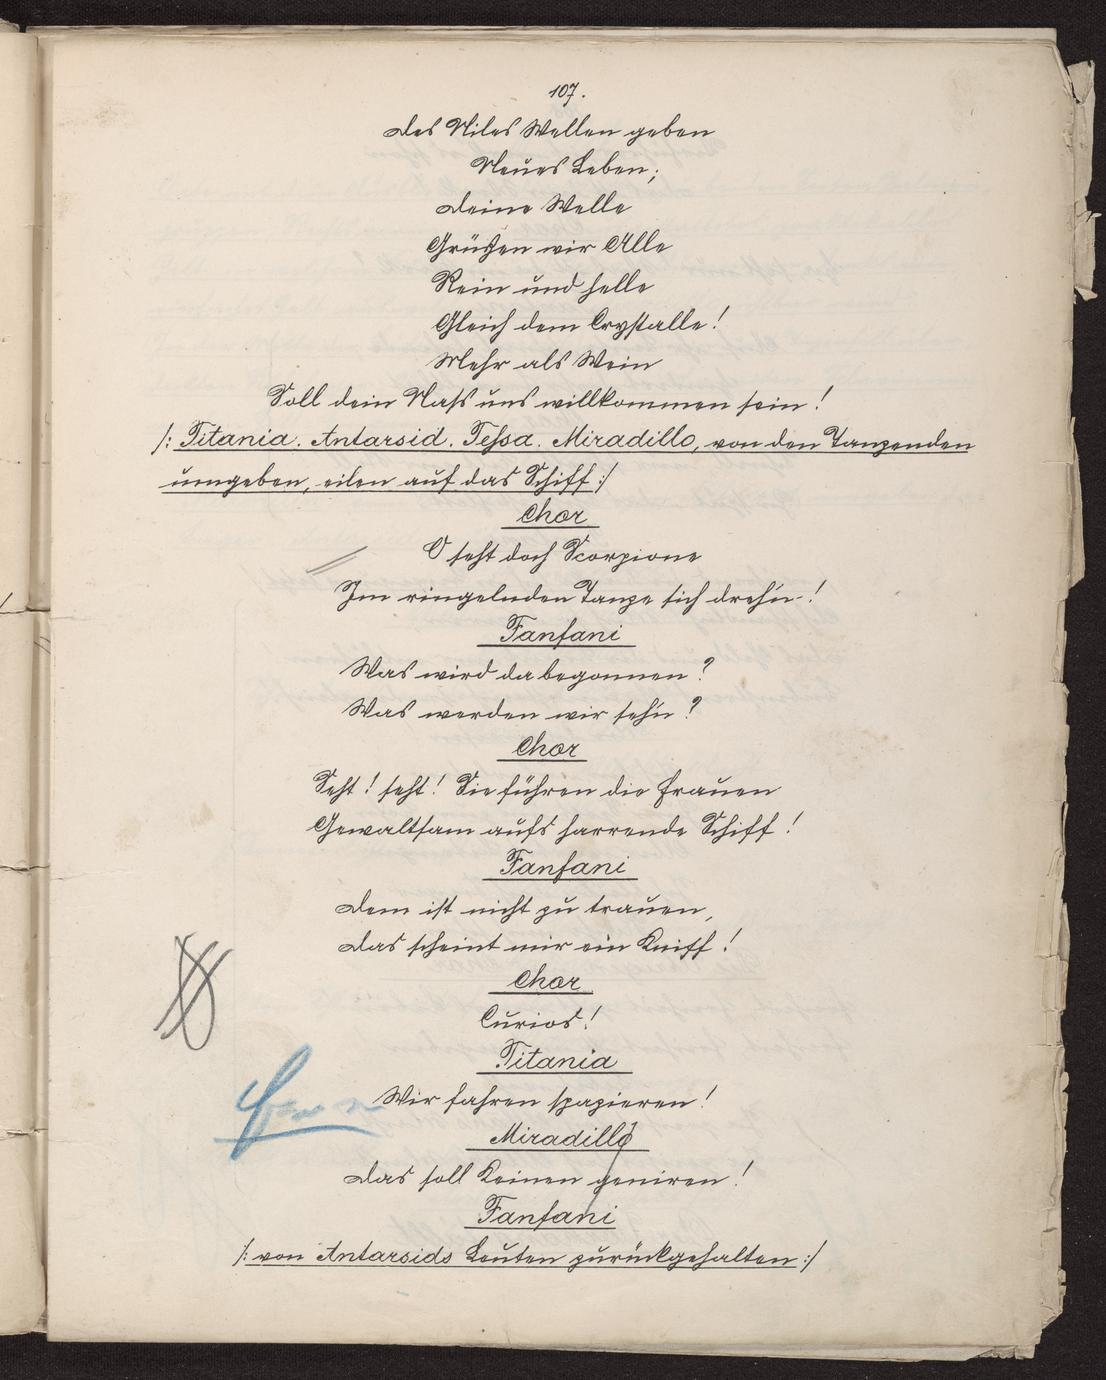 107.
Des Niles Wellen geben
Neues Leben;
Deine Welle
Grüßen wir Alle
Rein und helle
Gleich dem Crystalle!
Mehr als Wein
Soll dein Naß uns willkommen sein!
/: Titania. Antarsid. Tessa. Miradillo, von den Tanzenden
umgeben, eilen auf das Schiff :/
Chor
O seht doch Scorpione
Im ringelnden Tanze sich dreh'n!
Fanfani
Was wird da begonnen?
Was werden wir seh'n?
Chor
Seht! seht! Sie führen die Frauen
Gewaltsam aufs harrende Schiff!
Fanfani
Dem ist nicht zu trauen,
Das scheint mir ein Kniff!
Chor
Curios!
Titania
Wir fahren spazieren!
Miradillo
Das soll Keinen geniren!
Fanfani
/: von Antarsids Leuten zurückgehalten :/